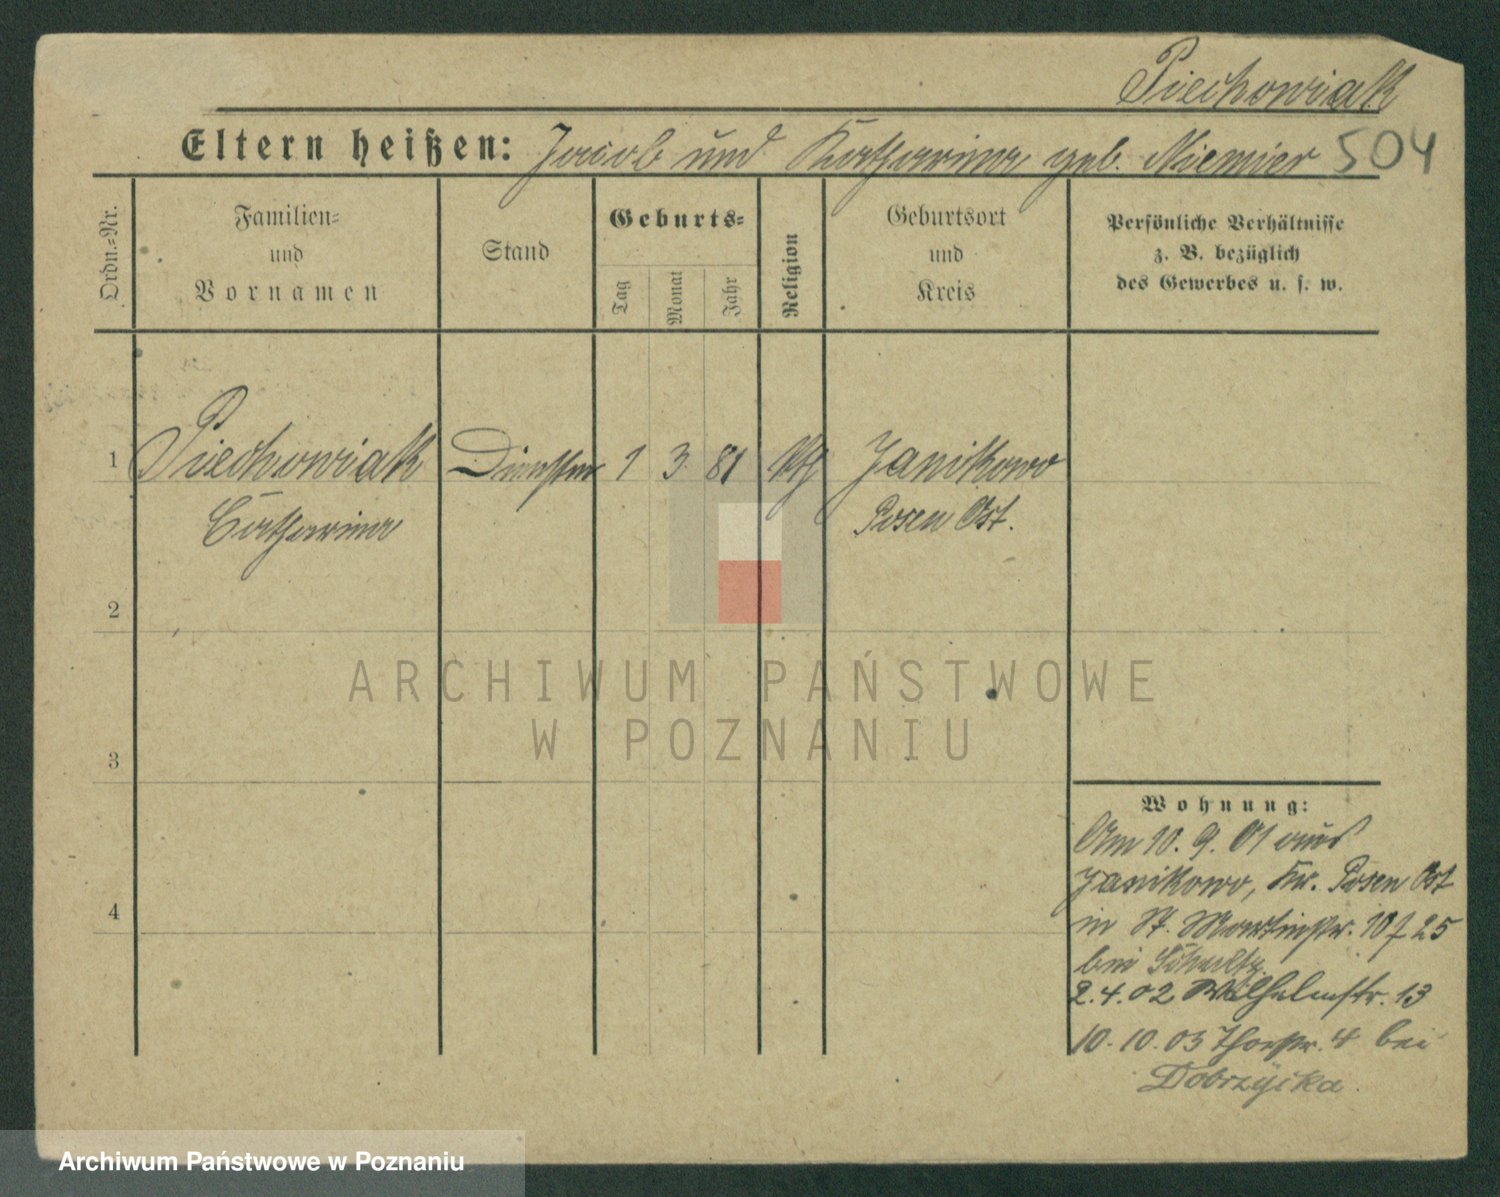 Piechowiak
Eltern heißen: Jacob und Katharina geb. Niemier 504
Ordn.=Nr.
Familien=
und
Vornamen
Stand
Geburts=
Tag
Monat
Jahr
Religion
Geburtsort
und
Kreis
Persönliche Verhältnisse
z. B. bezüglich
des Gewerbes u. s. w.
1 Piechowiak 1 3 81 Janikowo
Catharina Posen Ost.
2
3
4
Wohnung:
Am 10. 9. 01 aus
Janikowo, Kr. Posen Ost
in St. Martinstr. 25
bei
2.4.02 Wilhelmstr. 13
10.10.03 Thorstr. 4 bei
Dobrzycka.
ARCHIWUM PAŃSTWOWE
W POZNANIU
Archiwum Państwowe w Poznaniu